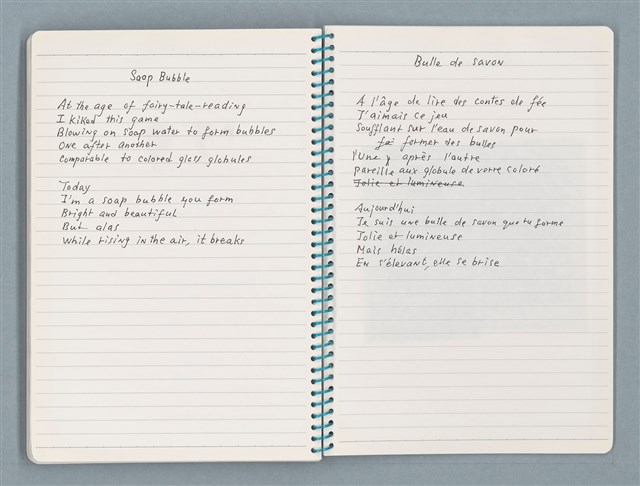 Soap Bubble
At the age of fairy-tale-reading
I kiked this game
Blowing on soap water to form bubbles
One after another
Comparable to colored glass globules
Today
I'm a soap bubble you form
Bright and beautiful
But alas
While rising in the air, it breaks
Bulle de savon
A l'âge de lire des contes de fée
J'aimais ce jeu
Soufflant sur l'eau de savon pour
former des bulles
l'Une après l'autre
pareille aux globule de verre coloré
Jolie et lumineuse
Aujourd'hui
Je suis une bulle de savon que tu forme
Jolie et lumineuse
Mais hélas
En s'élevant, elle se brise